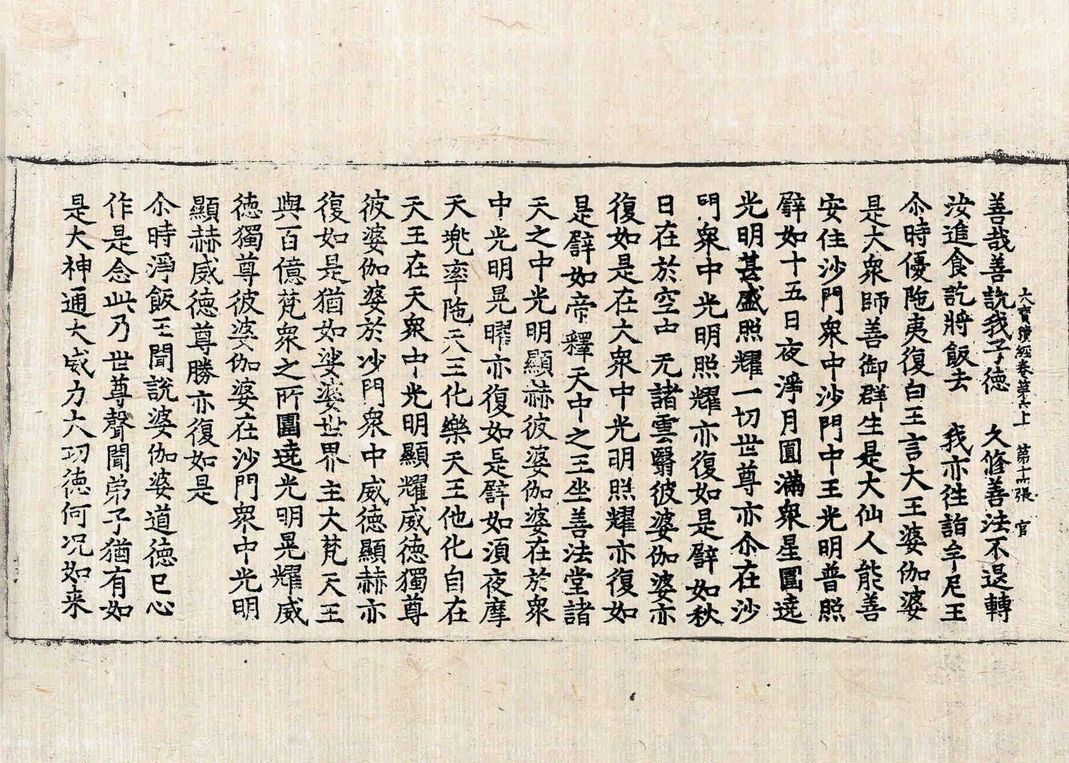 大寶積經卷第六十一 第十六張 官
善哉善說我子德 久修善法不退轉
汝進食訖將飯去 我亦往詣牟尼王
尒時優陁夷復白王言大王婆伽婆
是大衆師善御群生是大仙人能善
安住沙門衆中沙門中王光明普照
譬如十五日夜淨月圓滿衆星圍遶
光明甚盛照耀一切世尊亦尒在沙
門衆中光明照耀亦復如是譬如秋
日在於空中 无諸雲翳彼婆伽婆亦
復如是在大衆中光明照耀亦復如
是譬如帝釋天中之王坐善法堂諸
天之中光明顯赫彼婆伽婆在於衆
中光明晃曜亦復如是譬如須夜摩
天兜率陁天王化樂天王他化自在
天王在天衆中光明顯耀威德獨尊
彼婆伽婆於沙門衆中威德顯赫亦
復如是猶如娑婆世界主大梵天王
與百億梵衆之所圍遶光明晃耀威
德獨尊彼婆伽婆在沙門衆中光明
顯赫威德尊勝亦復如是
尒時淨飯王聞說婆伽婆道德已心
作是念此乃世尊聲聞弟子猶有如
是大神通大威力大功德何况如来